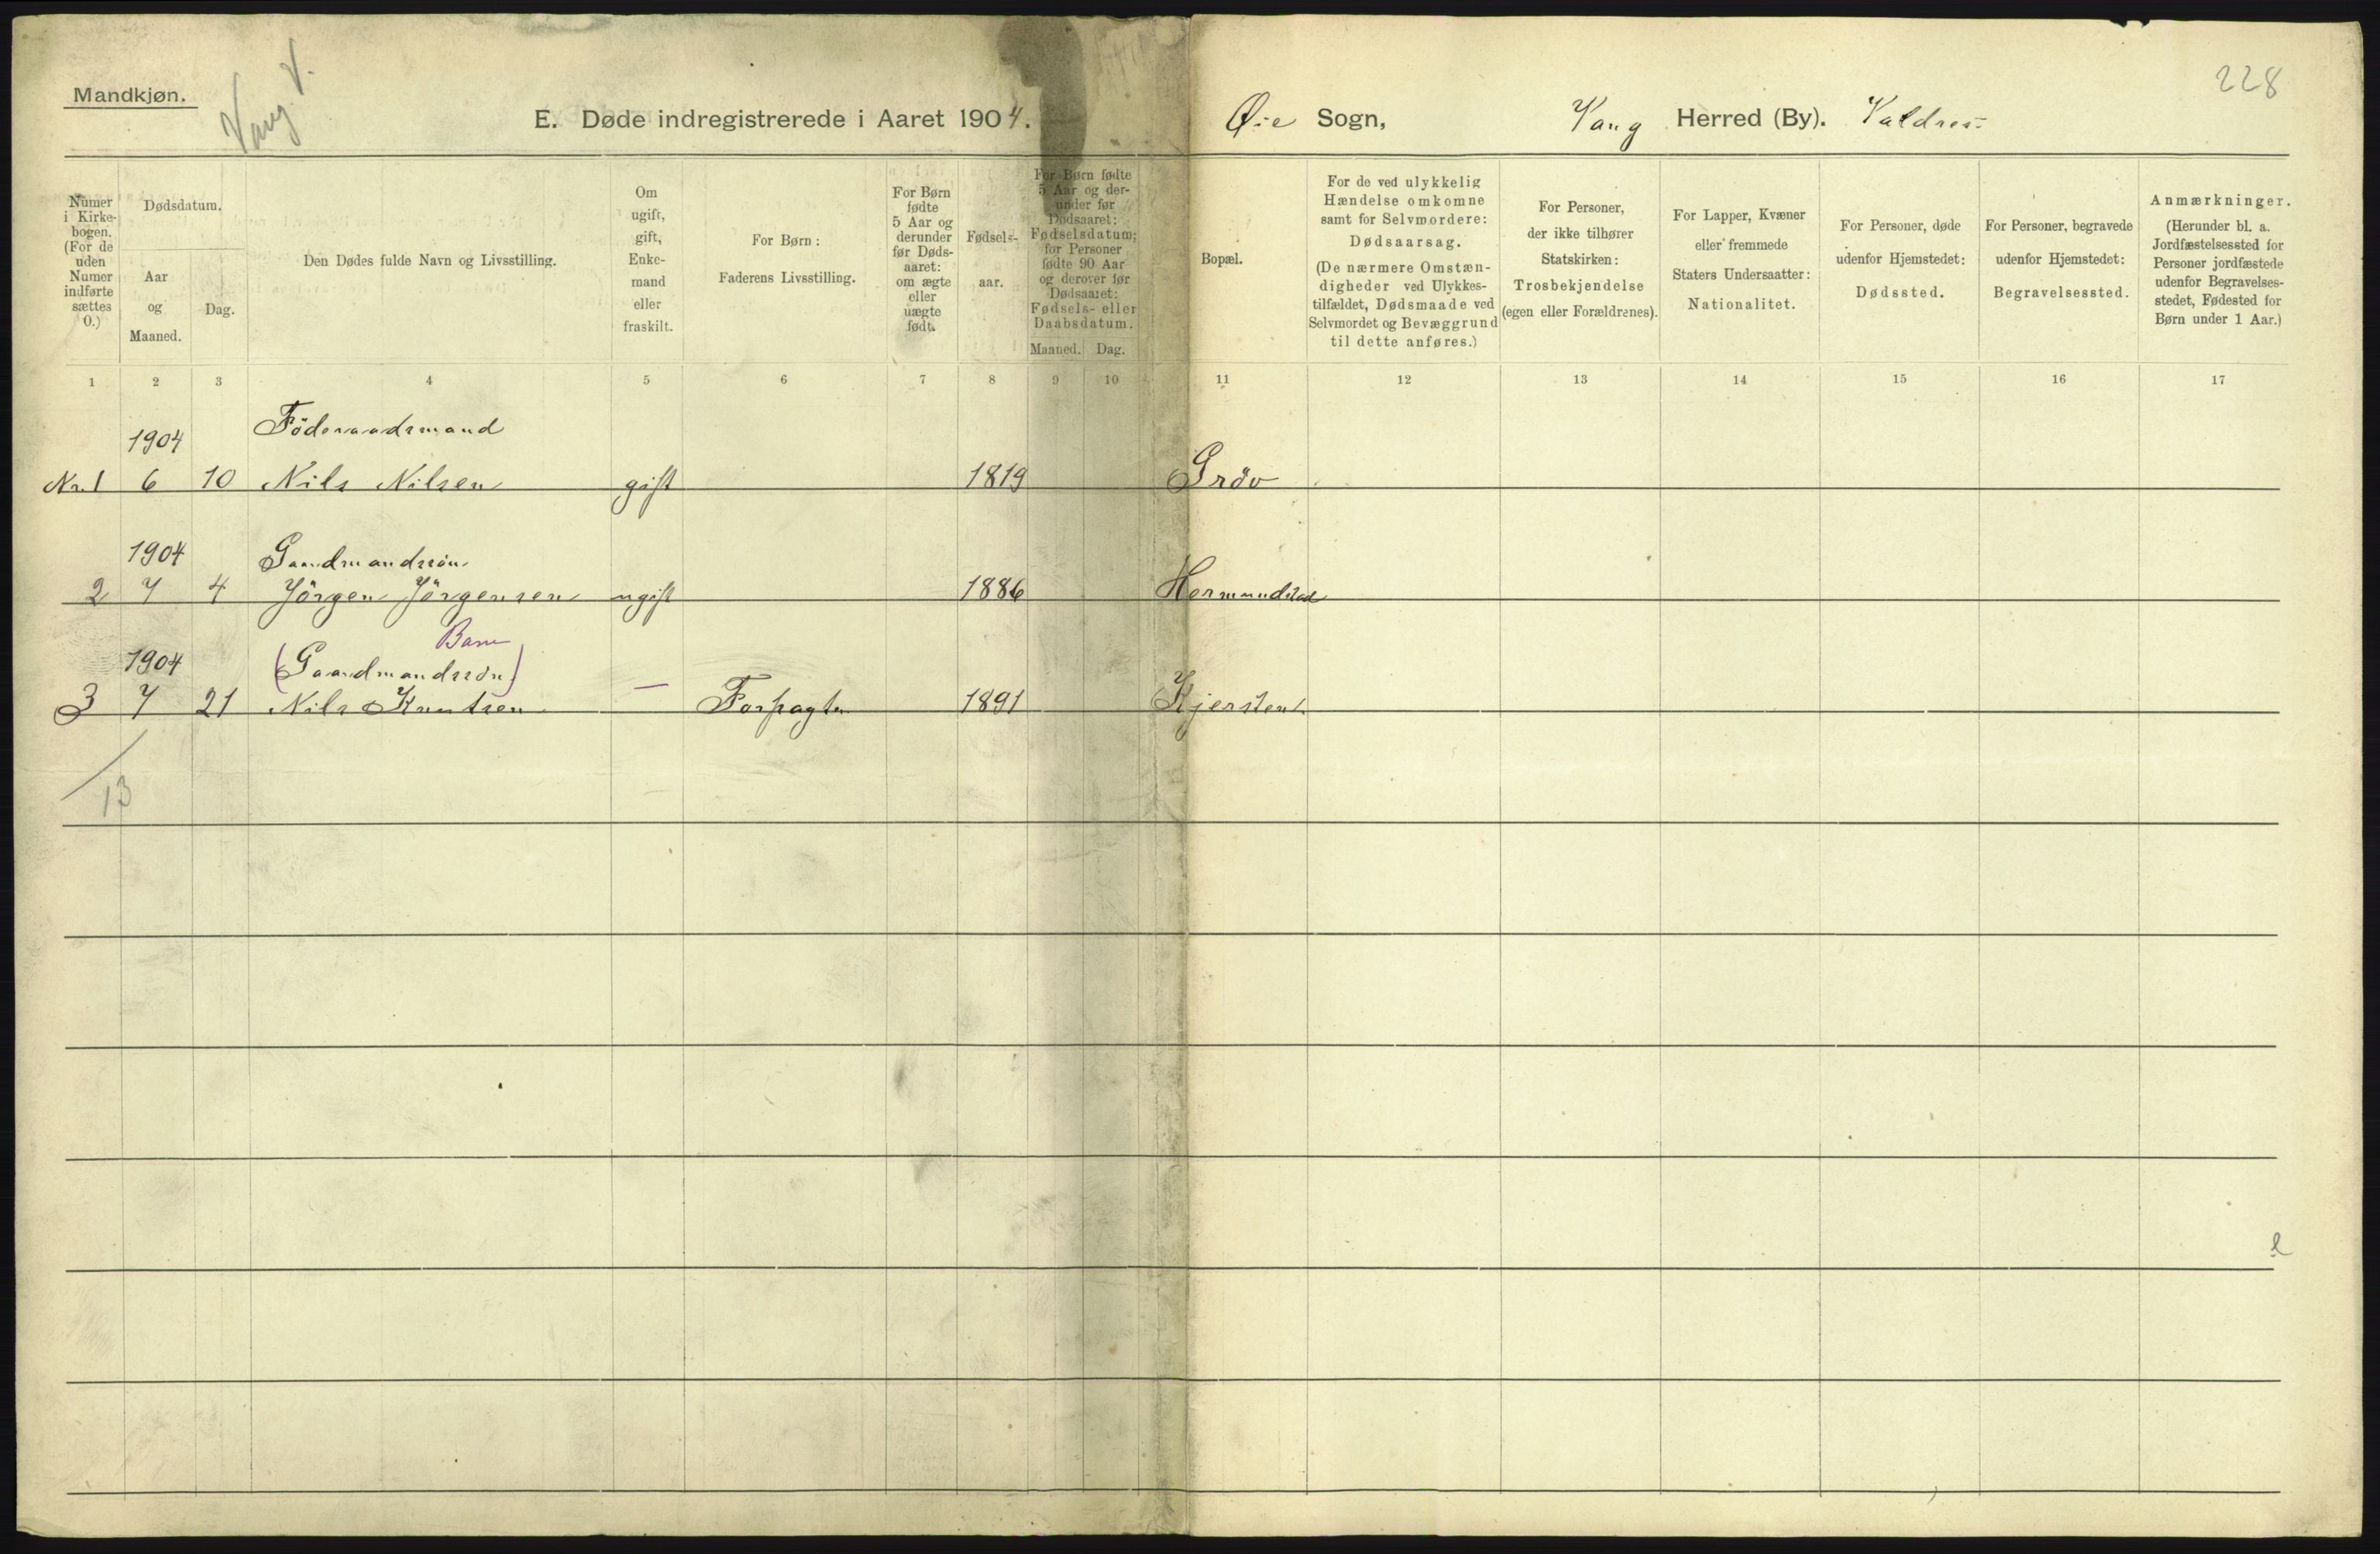 Mandkjøn.
Vang V.
228
E. Døde indregistrerede i Aaret 1904.
Øie Sogn, Vang Herred (By). Valdres.
Numer i Kirke-bogen. (For de uden Numer indførte sættes 0.)
Dødsdatum.
Aar og Maaned.
Dag.
Den Dødes fulde Navn og Livsstilling.
Om ugift, gift, Enke-mand eller fraskilt.
For Børn: Faderens Livsstilling.
For Børn fødte 5 Aar og derunder før Døds-aaret: om ægte eller uægte født.
Fødsels-aar.
For Børn fødte 5 Aar og der-under før Dødsaaret: Fødselsdatum; for Personer fødte 90 Aar og derover før Dødsaaret: Fødsels- eller Daabsdatum.
Maaned. Dag.
Bopæl.
For de ved ulykkelig Hændelse omkomne samt for Selvmordere: Dødsaarsag. (De nærmere Omstæn-digheder ved Ulykkes-tilfældet, Dødsmaade ved Selvmordet og Bevæggrund til dette anføres.)
For Personer, der ikke tilhører Statskirken: Trosbekjendelse (egen eller Forældrenes).
For Lapper, Kvæner eller fremmede Staters Undersaatter: Nationalitet.
For Personer, døde udenfor Hjemstedet: Dødssted.
For Personer, begravede udenfor Hjemstedet: Begravelsessted.
Anmærkninger. (Herunder bl. a. Jordfæstelsessted for Personer jordfæstede udenfor Begravelses-stedet, Fødested for Børn under 1 Aar.)
1 2 3 4 5 6 7 8 9 10 11 12 13 14 15 16 17
1904 Föderaadsmand
Nr. 1 6 10 Nils Nilsen gift 1819 Gröv
1904 Gaardmandssön
2 7 4 Jörgen Jörgensen ugift 1886 Hermundstad
Barn
1904 (Gaardmandssön)
3 7 21 Nils Knutsen — Forpagter 1891 Kjersten
13